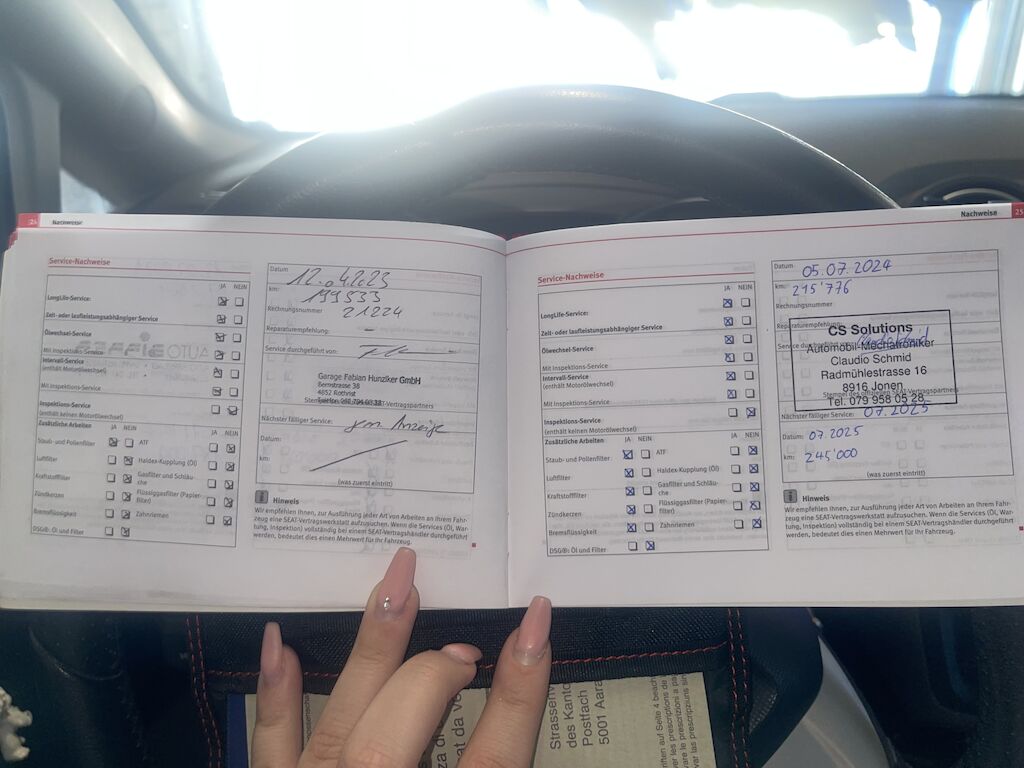 24 Nachweise
Service-Nachweise
JA NEIN
LongLife-Service:
Zeit- oder laufleistungsabhängiger Service
Ölwechsel-Service:
Mit Inspektions-Service
Intervall-Service
(enthält Motorölwechsel)
Mit Inspektions-Service
Inspektions-Service
(enthält keinen Motorölwechsel)
Zusätzliche Arbeiten JA NEIN JA NEIN
Staub- und Pollenfilter ATF
Luftfilter Haldex-Kupplung (Öl)
Kraftstofffilter Gasfilter und Schläuche
Zündkerzen Flüssiggasfilter (Papierfilter)
Bremsflüssigkeit Zahnriemen
DSG®: Öl und Filter
Datum 12.04.23
km: 199333
Rechnungsnummer 21224
Reparaturempfehlung: –
Service durchgeführt von:
Garage Fabian Hunziker GmbH
Bernstrasse 38
4852 Rothrist
Nächster fälliger Service: gem. Anzeige
Datum:
km:
(was zuerst eintritt)
Hinweis
Wir empfehlen Ihnen, zur Ausführung jeder Art von Arbeiten an Ihrem Fahr-
zeug eine SEAT-Vertragswerkstatt aufzusuchen. Wenn die Services (Öl, War-
tung, Inspektion) vollständig bei einem SEAT-Vertragshändler durchgeführt
werden, bedeutet dies einen Mehrwert für Ihr Fahrzeug.
Nachweise 25
Service-Nachweise
JA NEIN
LongLife-Service:
Zeit- oder laufleistungsabhängiger Service
Ölwechsel-Service
Mit Inspektions-Service
Intervall-Service
(enthält Motorölwechsel)
Mit Inspektions-Service
Inspektions-Service
(enthält keinen Motorölwechsel)
Zusätzliche Arbeiten JA NEIN JA NEIN
Staub- und Pollenfilter ATF
Luftfilter Haldex-Kupplung (Öl)
Kraftstofffilter Gasfilter und Schläu-
che
Zündkerzen Flüssiggasfilter (Papier-
filter)
Bremsflüssigkeit Zahnriemen
DSG®: Öl und Filter
Datum 05.07.2024
km: 215'776
Rechnungsnummer
Reparaturempfehlung:
Service durchgeführt von:
CS Solutions
Automobil-Mechatroniker
Claudio Schmid
Radmühlestrasse 16
8916 Jonen
Tel. 079 958 05 28
Nächster fälliger Service: 07.2025
Datum: 07.2025
km: 245'000
(was zuerst eintritt)
Hinweis
Wir empfehlen Ihnen, zur Ausführung jeder Art von Arbeiten an Ihrem Fahr-
zeug eine SEAT-Vertragswerkstatt aufzusuchen. Wenn die Services (Öl, War-
tung, Inspektion) vollständig bei einem SEAT-Vertragshändler durchgeführt
werden, bedeutet dies einen Mehrwert für Ihr Fahrzeug.
Postfach
5001 Aara